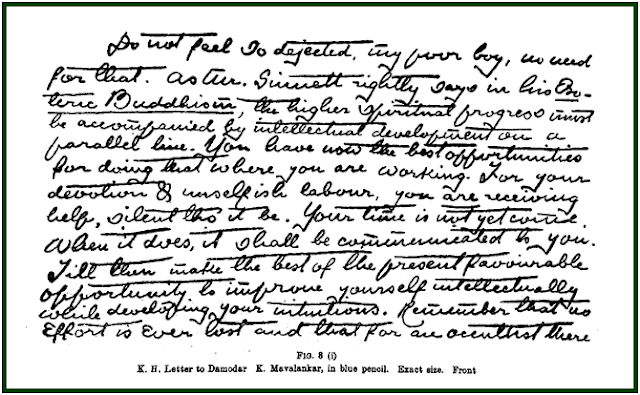 Do not feel so dejected, my poor boy, no need
for that. As Mr. Sinnett rightly says in his Eso-
teric Buddhism, the higher spiritual progress must
be accompanied by intellectual development on a
parallel line. You have now the best opportunities
for doing that where you are working. For your
devotion & unselfish labour, you are receiving
help, silent tho' it be. Your time is not yet come.
When it does, it shall be communicated to you.
Till then make the best of the present favourable
opportunity to improve yourself intellectually
while developing your intuitions. Remember that no
effort is ever lost and that for an occultist there
FIG. 8 (i)
K. H. Letter to Damodar K. Mavalankar, in blue pencil. Exact size. Front